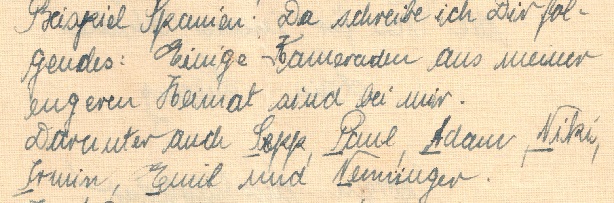 Beispiel Spanien! Da schreibe ich Dir fol-
gendes: Einige Kameraden aus meiner
engeren Heimat sind bei mir.
Darunter auch Sepp, Paul, Adam, Niki,
Irmin, Emil und Nenninger.